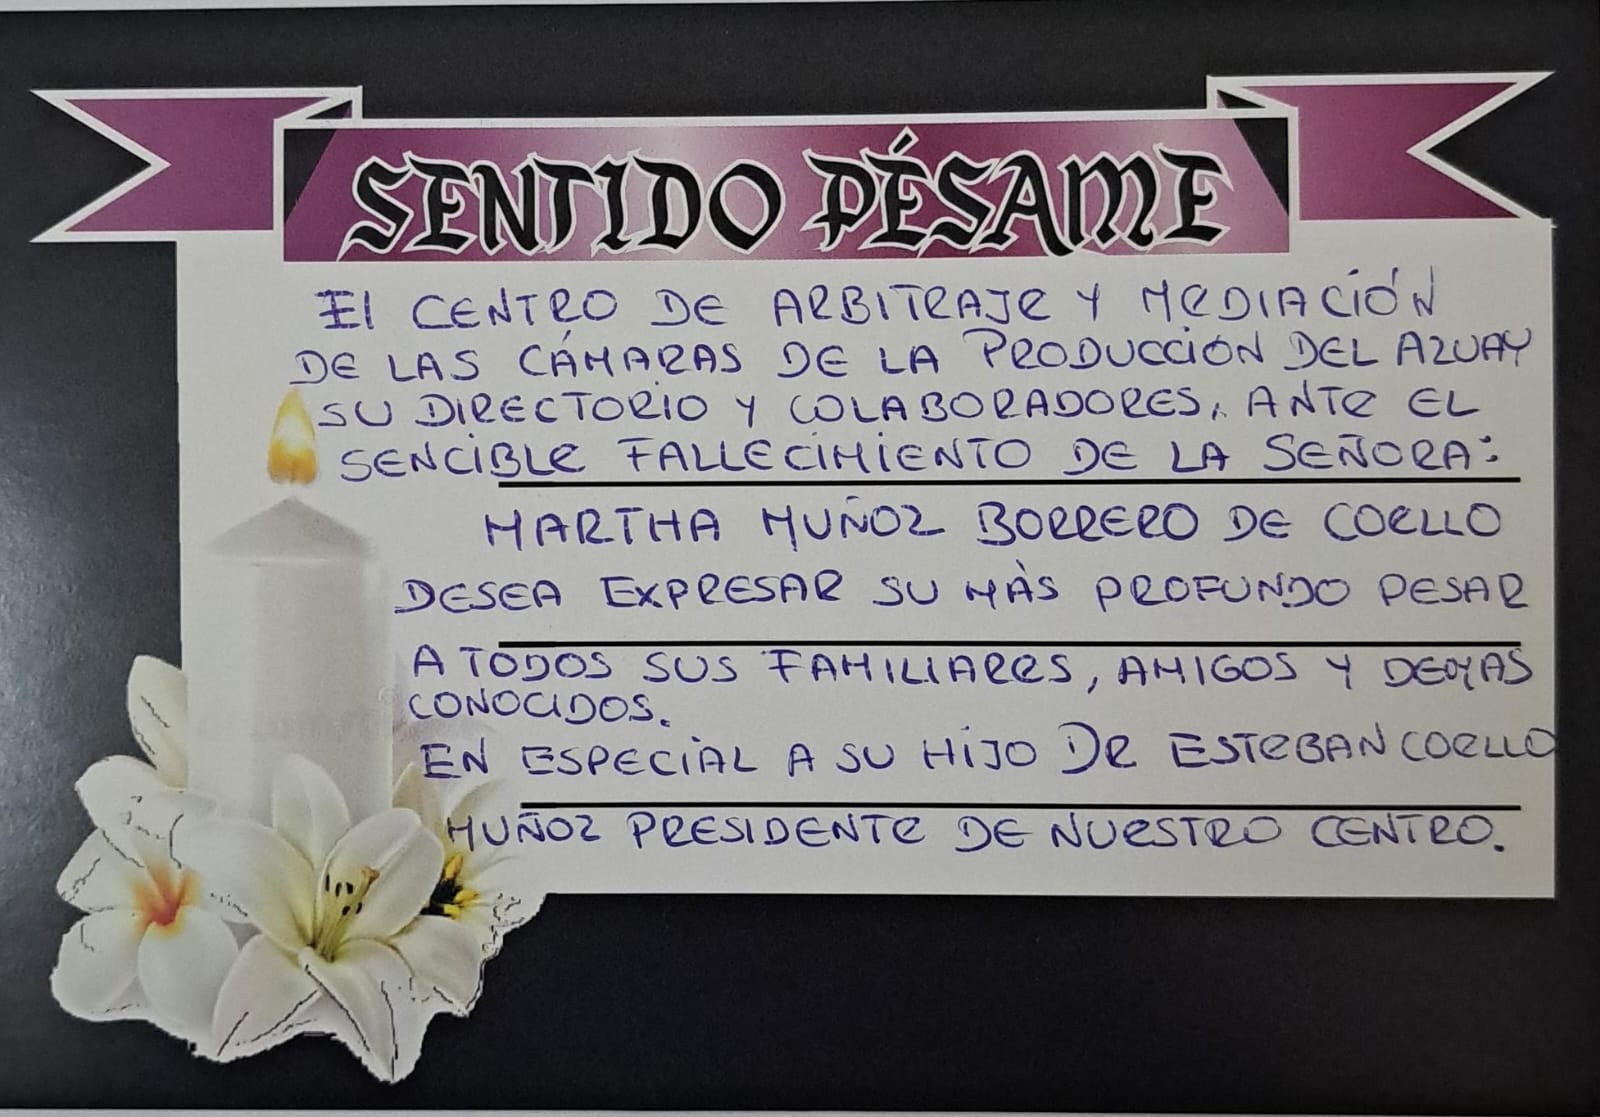 SENTIDO PÉSAME
El CENTRO DE ARBITRAJE Y MEDIACIÓN
DE LAS CÁMARAS DE LA PRODUCCIÓN DEL AZUAY
SU DIRECTORIO Y COLABORADORES, ANTE EL
SENCIBLE FALLECIMIENTO DE LA SEÑORA:
MARTHA MUÑOZ BORRERO DE COELLO
DESEA EXPRESAR SU MÀS PROFUNDO PESAR
A TODOS SUS FAMILIARES, AMIGOS Y DEMAS
CONOCIDOS.
EN ESPECIAL A SU HIJO DR ESTEBAN COELLO
MUÑOZ PRESIDENTE DE NUESTRO CENTRO.